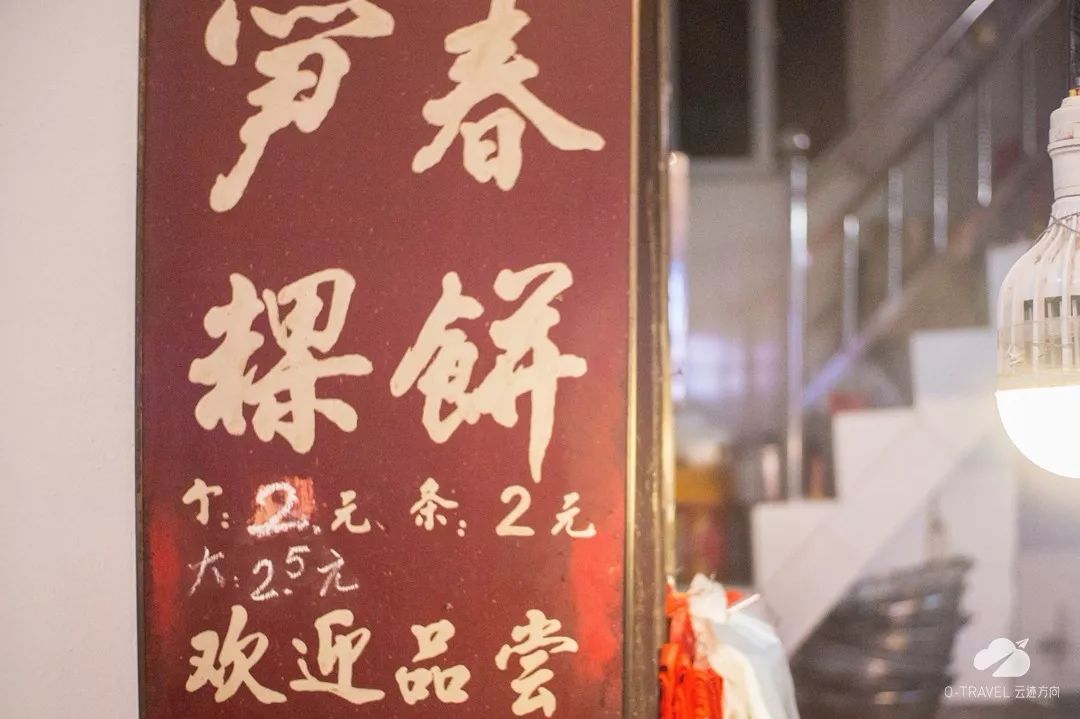 春餅
笋粿
个：2元
条：2元
大：2.5元
欢迎品尝
O-TRAVEL 云迹方向